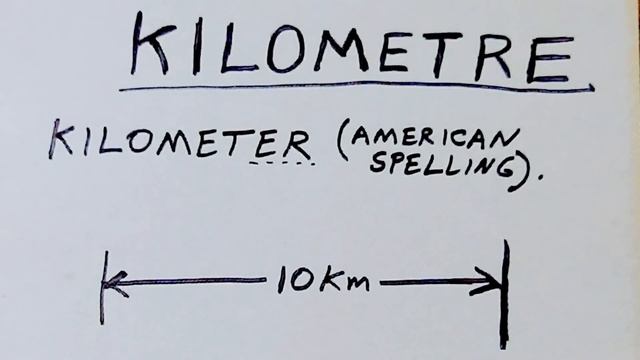 KILOMETRE
KILOMETER (AMERICAN
SPELLING).
10 Km